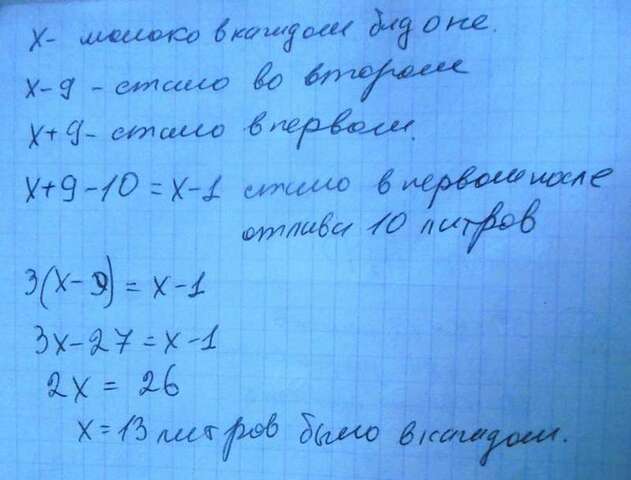 х- молоко в каждом бидоне.
х-9 - стало во втором
х+9- стало в первом.
х+9-10=х-1 стало в первом после
отлива 10 литров
3(х-9)=х-1
3х-27=х-1
2х = 26
х=13 литров было в каждом.